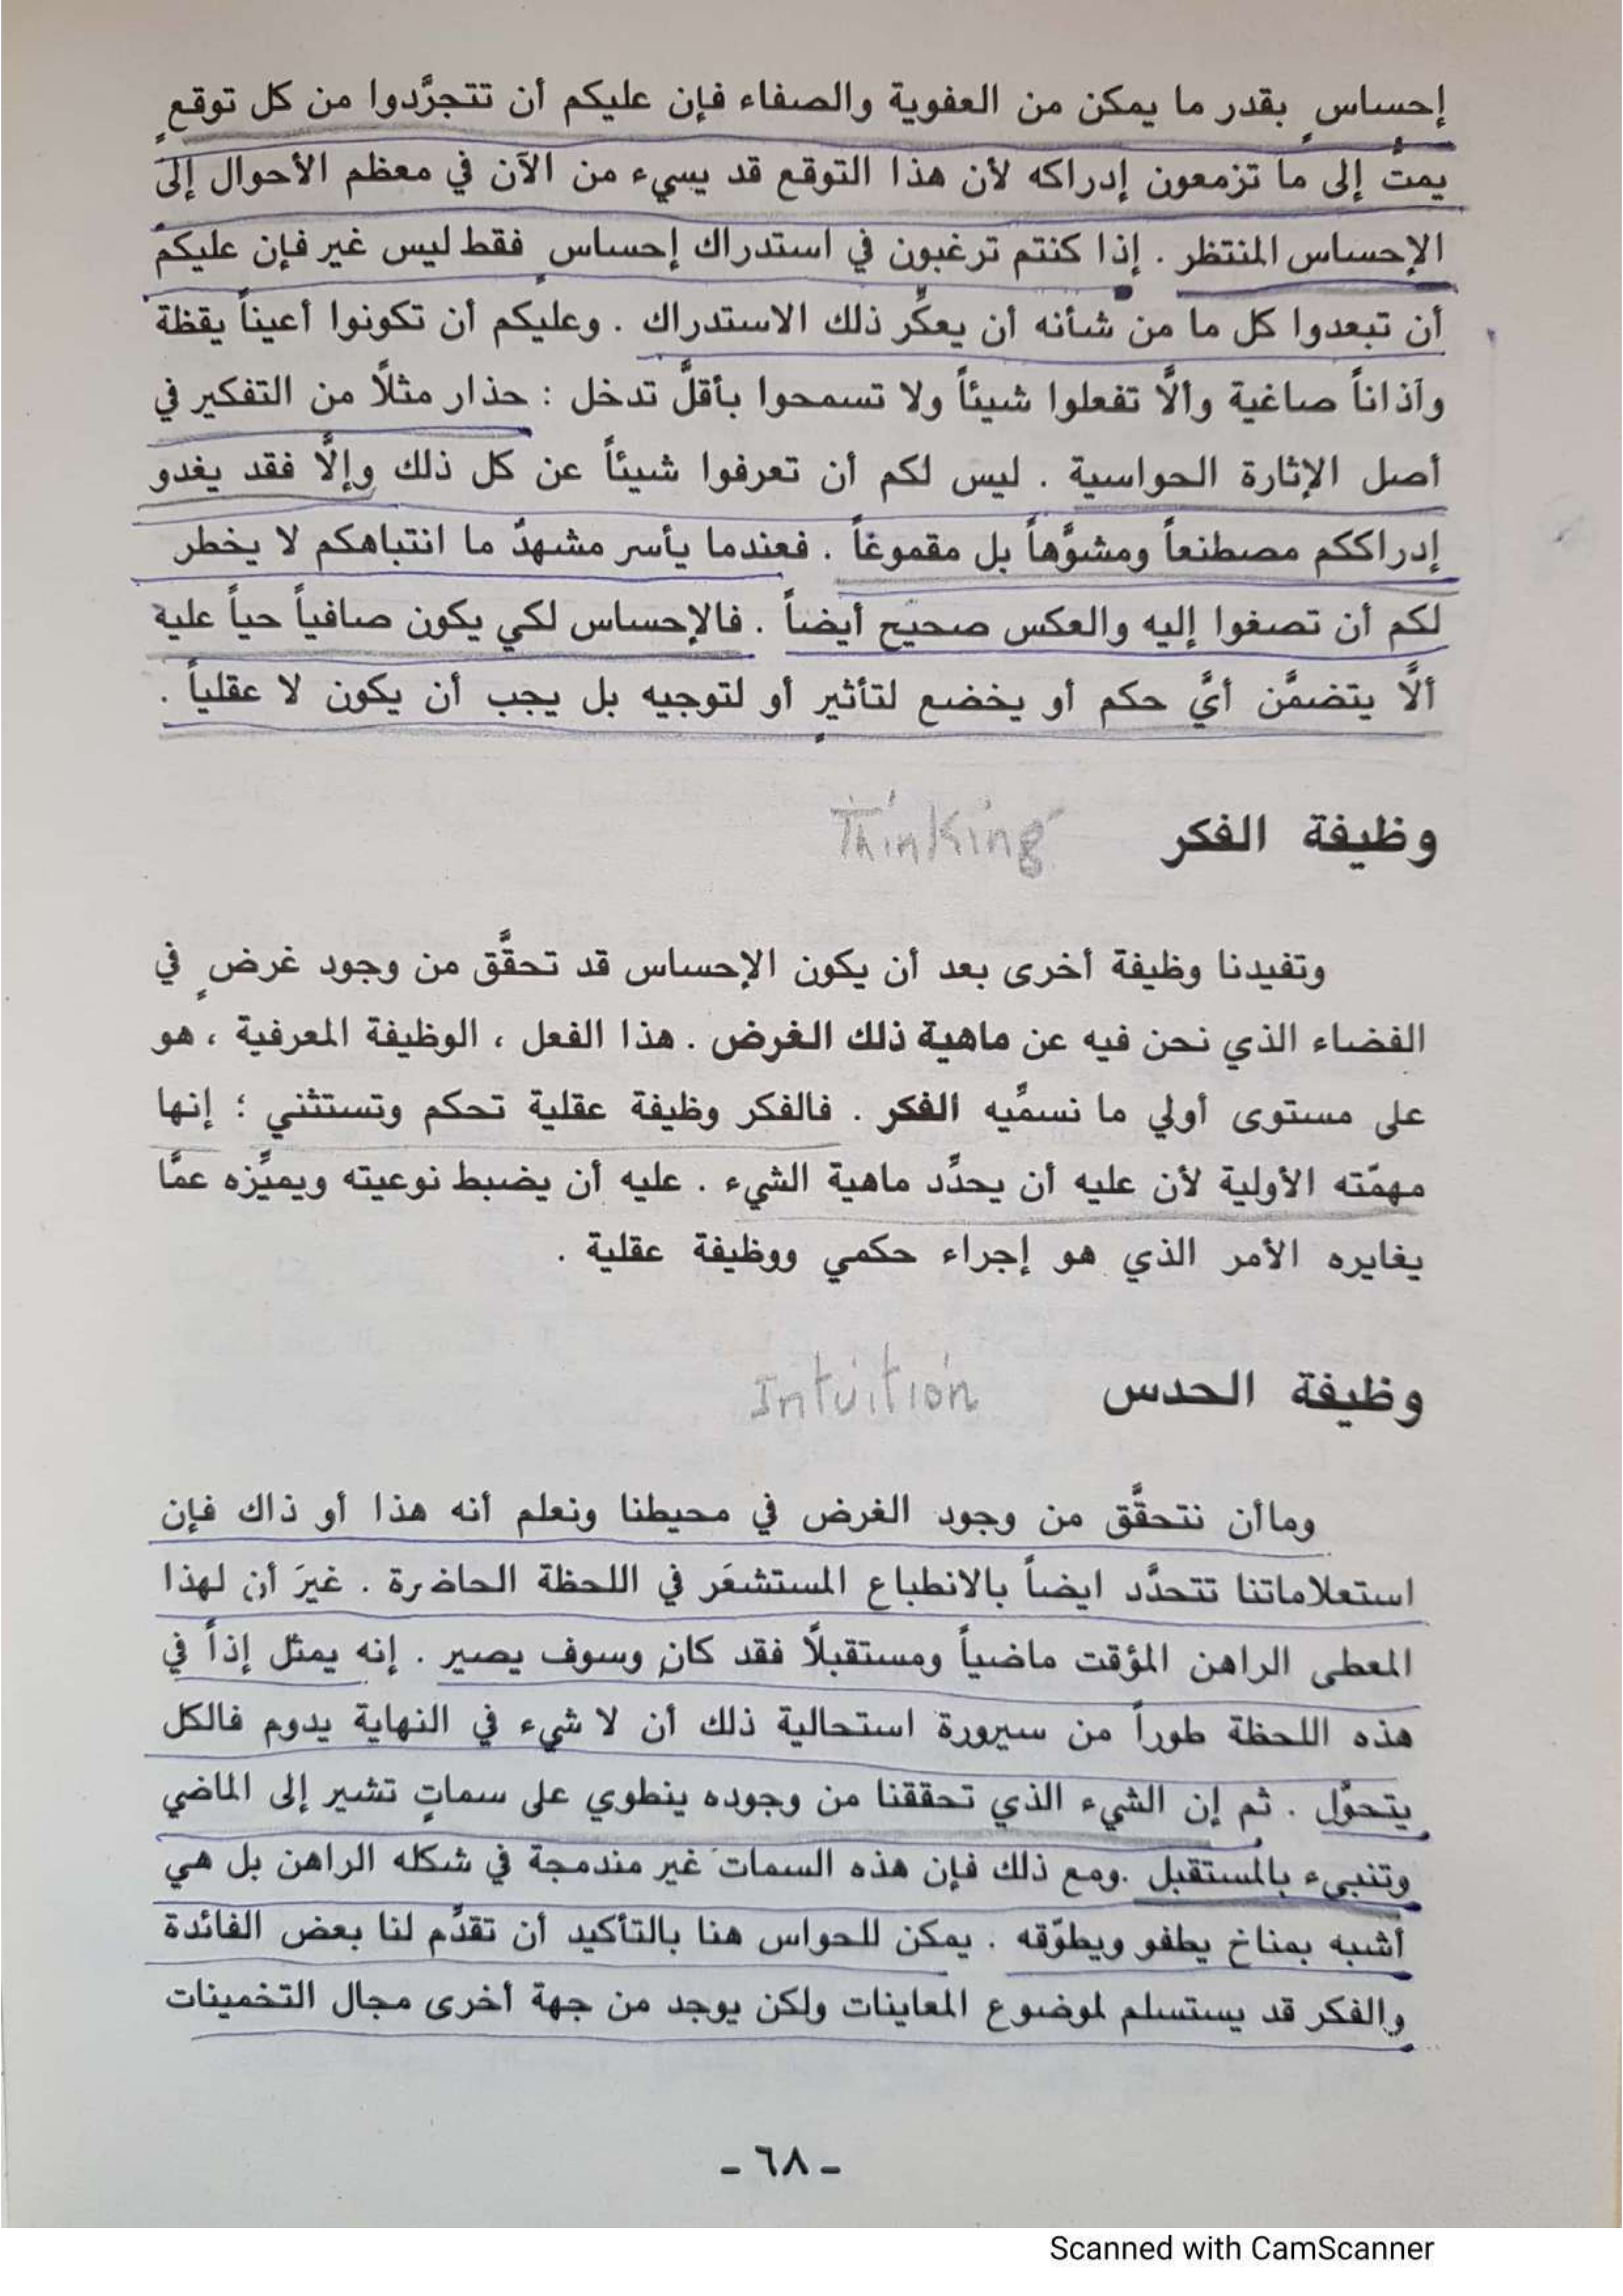 إحساسٍ بقدر ما يمكن من العفوية والصفاء فإن عليكم أن تتجرَّدوا من كل توقعٍ
يمتُّ إلى ما تزمعون إدراكه لأن هذا التوقع قد يسيء من الآن في معظم الأحوال إلى
الإحساس المنتظر . إذا كنتم ترغبون في استدراك إحساسٍ فقط ليس غير فإن عليكم
أن تبعدوا كل ما من شأنه أن يعكِّر ذلك الاستدراك . وعليكم أن تكونوا أعيناً يقظة
وآذاناً صاغية وألَّا تفعلوا شيئاً ولا تسمحوا بأقلَّ تدخل : حذار مثلاً من التفكير في
أصل الإثارة الحواسية . ليس لكم أن تعرفوا شيئاً عن كل ذلك وإلَّا فقد يغدو
إدراككم مصطنعاً ومشوَّهاً بل مقموعاً . فعندما يأسر مشهدٌ ما انتباهكم لا يخطر
لكم أن تصغوا إليه والعكس صحيح أيضاً . فالإحساس لكي يكون صافياً حياً عليه
ألَّا يتضمَّن أيَّ حكم أو يخضع لتأثيرٍ أو لتوجيه بل يجب أن يكون لا عقلياً .
وظيفة الفكر Thinking
وتفيدنا وظيفة أخرى بعد أن يكون الإحساس قد تحقَّق من وجود غرضٍ في
الفضاء الذي نحن فيه عن ماهية ذلك الغرض . هذا الفعل ، الوظيفة المعرفية ، هو
على مستوى أولي ما نسمِّيه الفكر . فالفكر وظيفة عقلية تحكم وتستثني ؛ إنها
مهمّته الأولية لأن عليه أن يحدِّد ماهية الشيء . عليه أن يضبط نوعيته ويميِّزه عمَّا
يغايره الأمر الذي هو إجراء حكمي ووظيفة عقلية .
وظيفة الحدس Intuition
وماأن نتحقَّق من وجود الغرض في محيطنا ونعلم أنه هذا أو ذاك فإن
استعلاماتنا تتحدَّد ايضاً بالانطباع المستشعَر في اللحظة الحاضرة . غيرَ أن لهذا
المعطى الراهن المؤقت ماضياً ومستقبلاً فقد كان وسوف يصير . إنه يمثل إذاً في
هذه اللحظة طوراً من سيرورة استحالية ذلك أن لا شيء في النهاية يدوم فالكل
يتحوَّل . ثم إن الشيء الذي تحققنا من وجوده ينطوي على سماتٍ تشير إلى الماضي
وتنبىء بالمستقبل .ومع ذلك فإن هذه السمات غير مندمجة في شكله الراهن بل هي
أشبه بمناخ يطفو ويطوّقه . يمكن للحواس هنا بالتأكيد أن تقدِّم لنا بعض الفائدة
والفكر قد يستسلم لموضوع المعاينات ولكن يوجد من جهة أخرى مجال التخمينات
- ٦٨ -
Scanned with CamScanner